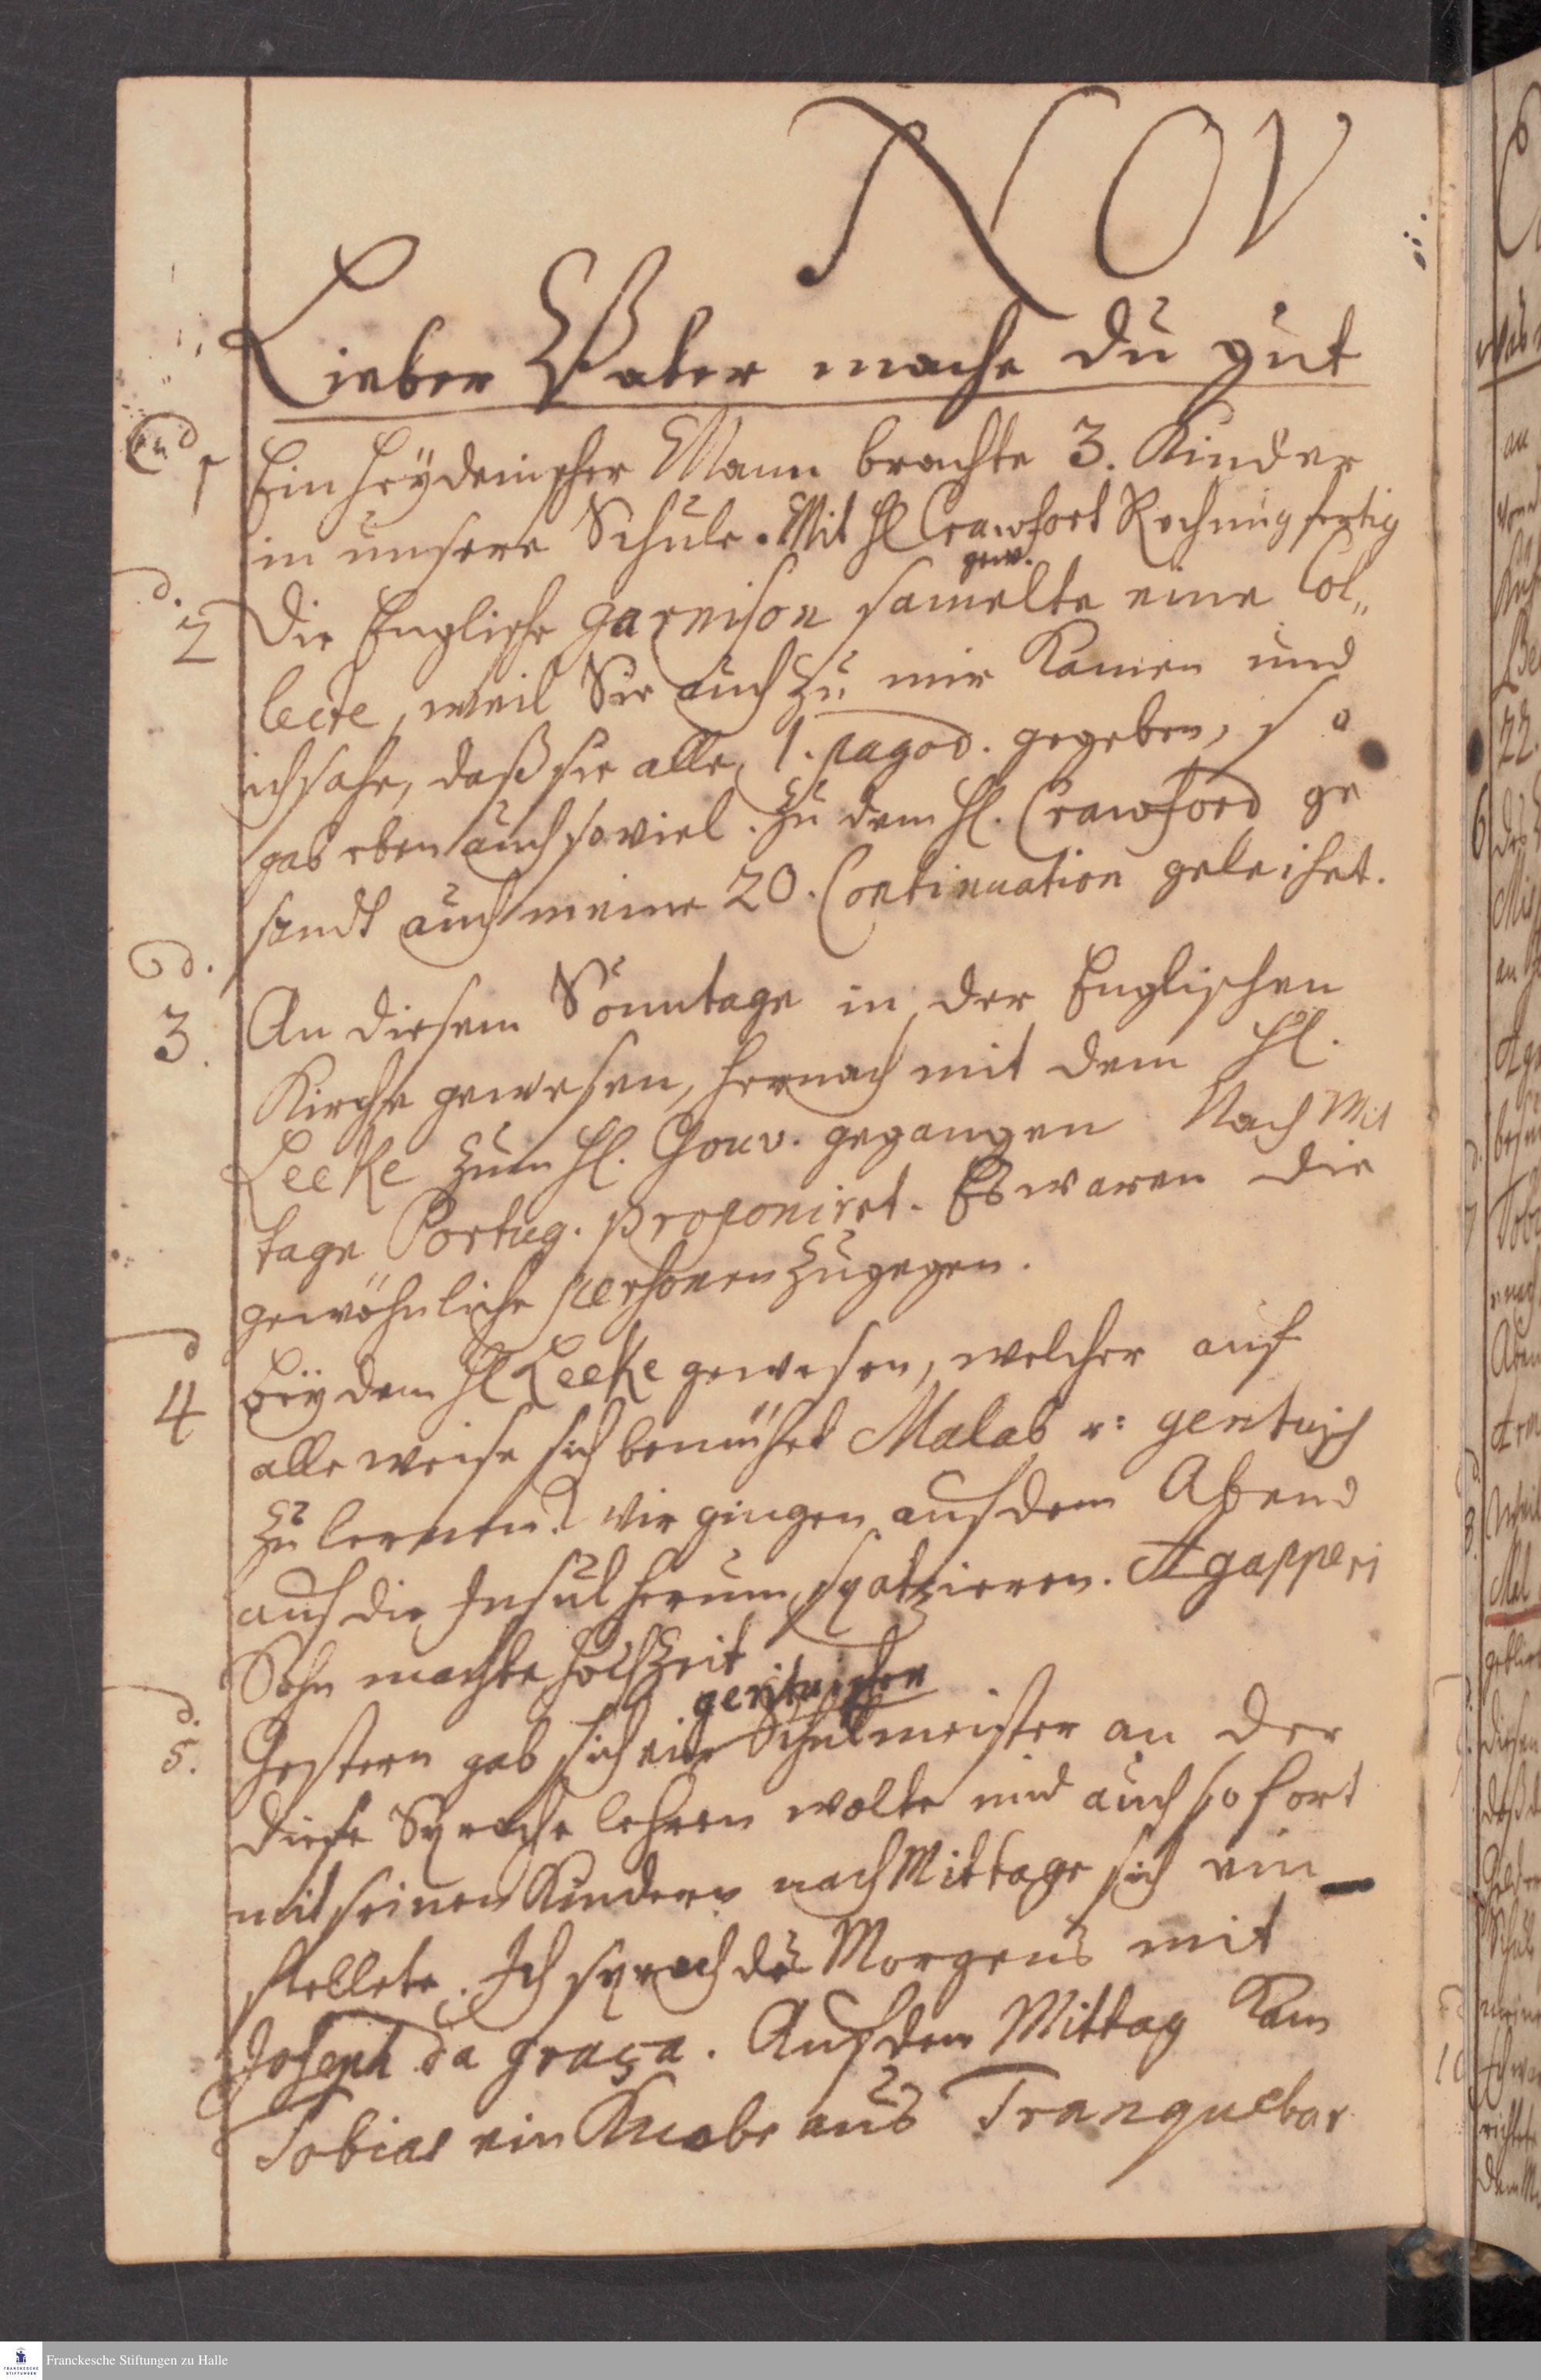 NOV
Lieber Vater mache du gut
d 1 Ein heÿdenischer Mann brachte 3. Kinder
in unsere Schule. Mit H Crawfort Rechnung fertig
gem.
d. 2 die Englische garnison samelte eine Col„
lecte, weil Sie auch zu mir Kamen und
ich sahe, daß sie alle 1. pagod. gegeben, so
gab eben auch soviel. zu dem H. Crawford ge
sandt auch meine 20. Continuation geleihet.
d. 3. An diesem Sonntage in der Englischen
Kirche gewesen, hernach mit dem H.
Leeke zum H. Gouv. gegangen Nach Mit
tage Portug. proponiret. Es waren die
gewöhnliche persohnen zugegen.
d 4 beÿ dem H Leeke gewesen, welcher auf
alle weise sich bemühet Malab u: gentuisch
zu lernen. Wir gingen auf dem Abend
auf die Insul herum spatzieren. Agapperi
Sohn machte hochzeit
gentuischer
d. 5. Gestern gab sich ein Schulmeister an der
diese Sprache lehren wolte und auch sofort
mit seinen Kindern nach Mittage sich ein
stellete. Ich sprach des Morgens mit
Joseph da graça. Auf den Mittag Kam
Tobias ein Knabe aus Tranquebar
Franckesche Stiftungen zu Halle